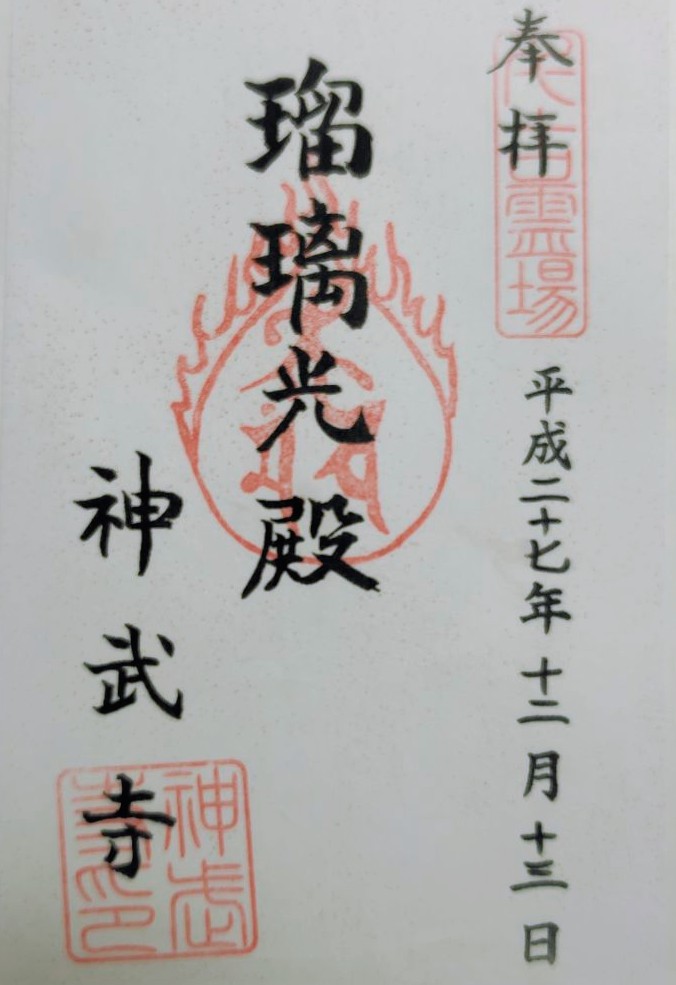 奉拝
霊場
平成二十七年十二月十三日
瑠璃光殿
神武寺
神武寺印